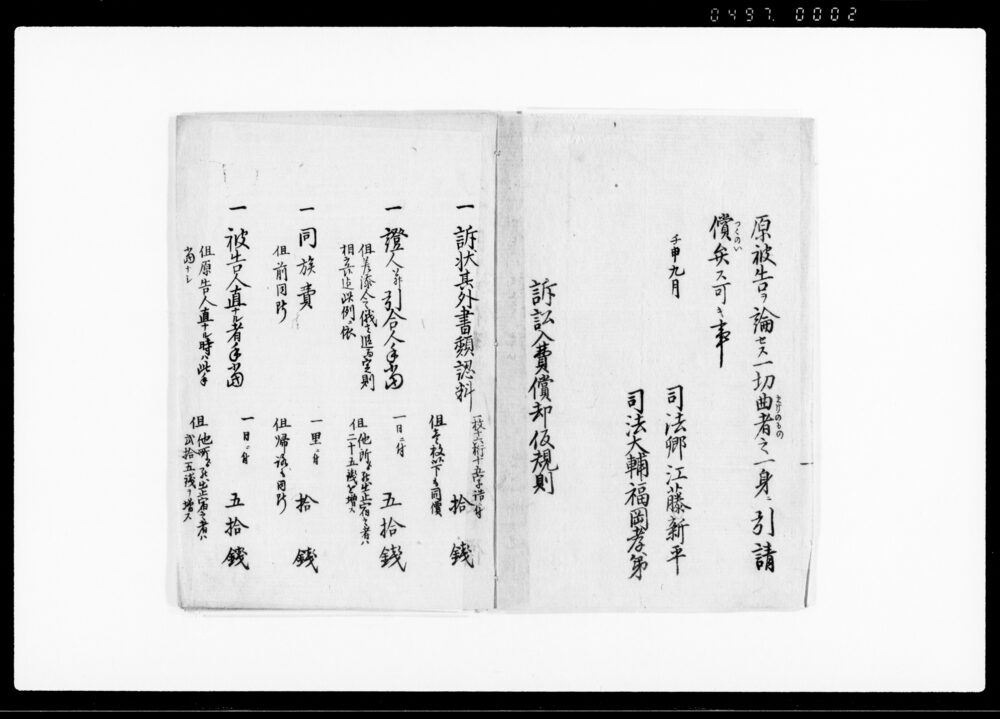 0497. 0002
原被告ヲ論セス一切曲者之一身ニ引請
まけのもの
償矣ス可キ事
つくのい
壬申九月
司法卿江藤新平
司法大輔福岡孝弟
訴訟入費償却仮規則
一 訴状其外書類認料
一枚十六桁十五字詰ニ付 拾錢
但壱枚以下モ同價
一 證人并引合人手當 一日ニ付 五拾錢
但差添人
相當此例ニ依
但他所ヨリ出止宿之者ハ
二十五錢を増ス
一 同族費 一里ニ付 拾錢
但前同断
但帰路も同断
一 被告人直ナル者手當 一日ニ付 五拾錢
但原告人直ナル時ハ此手
當ナシ
但他所ヨリ出止宿之者ハ
貳拾五錢ヲ増ス